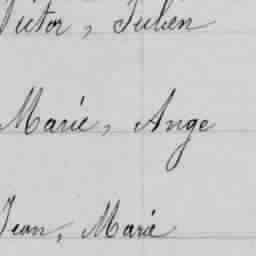 Victor, Julien
Marie, Ange
Jean, Marie